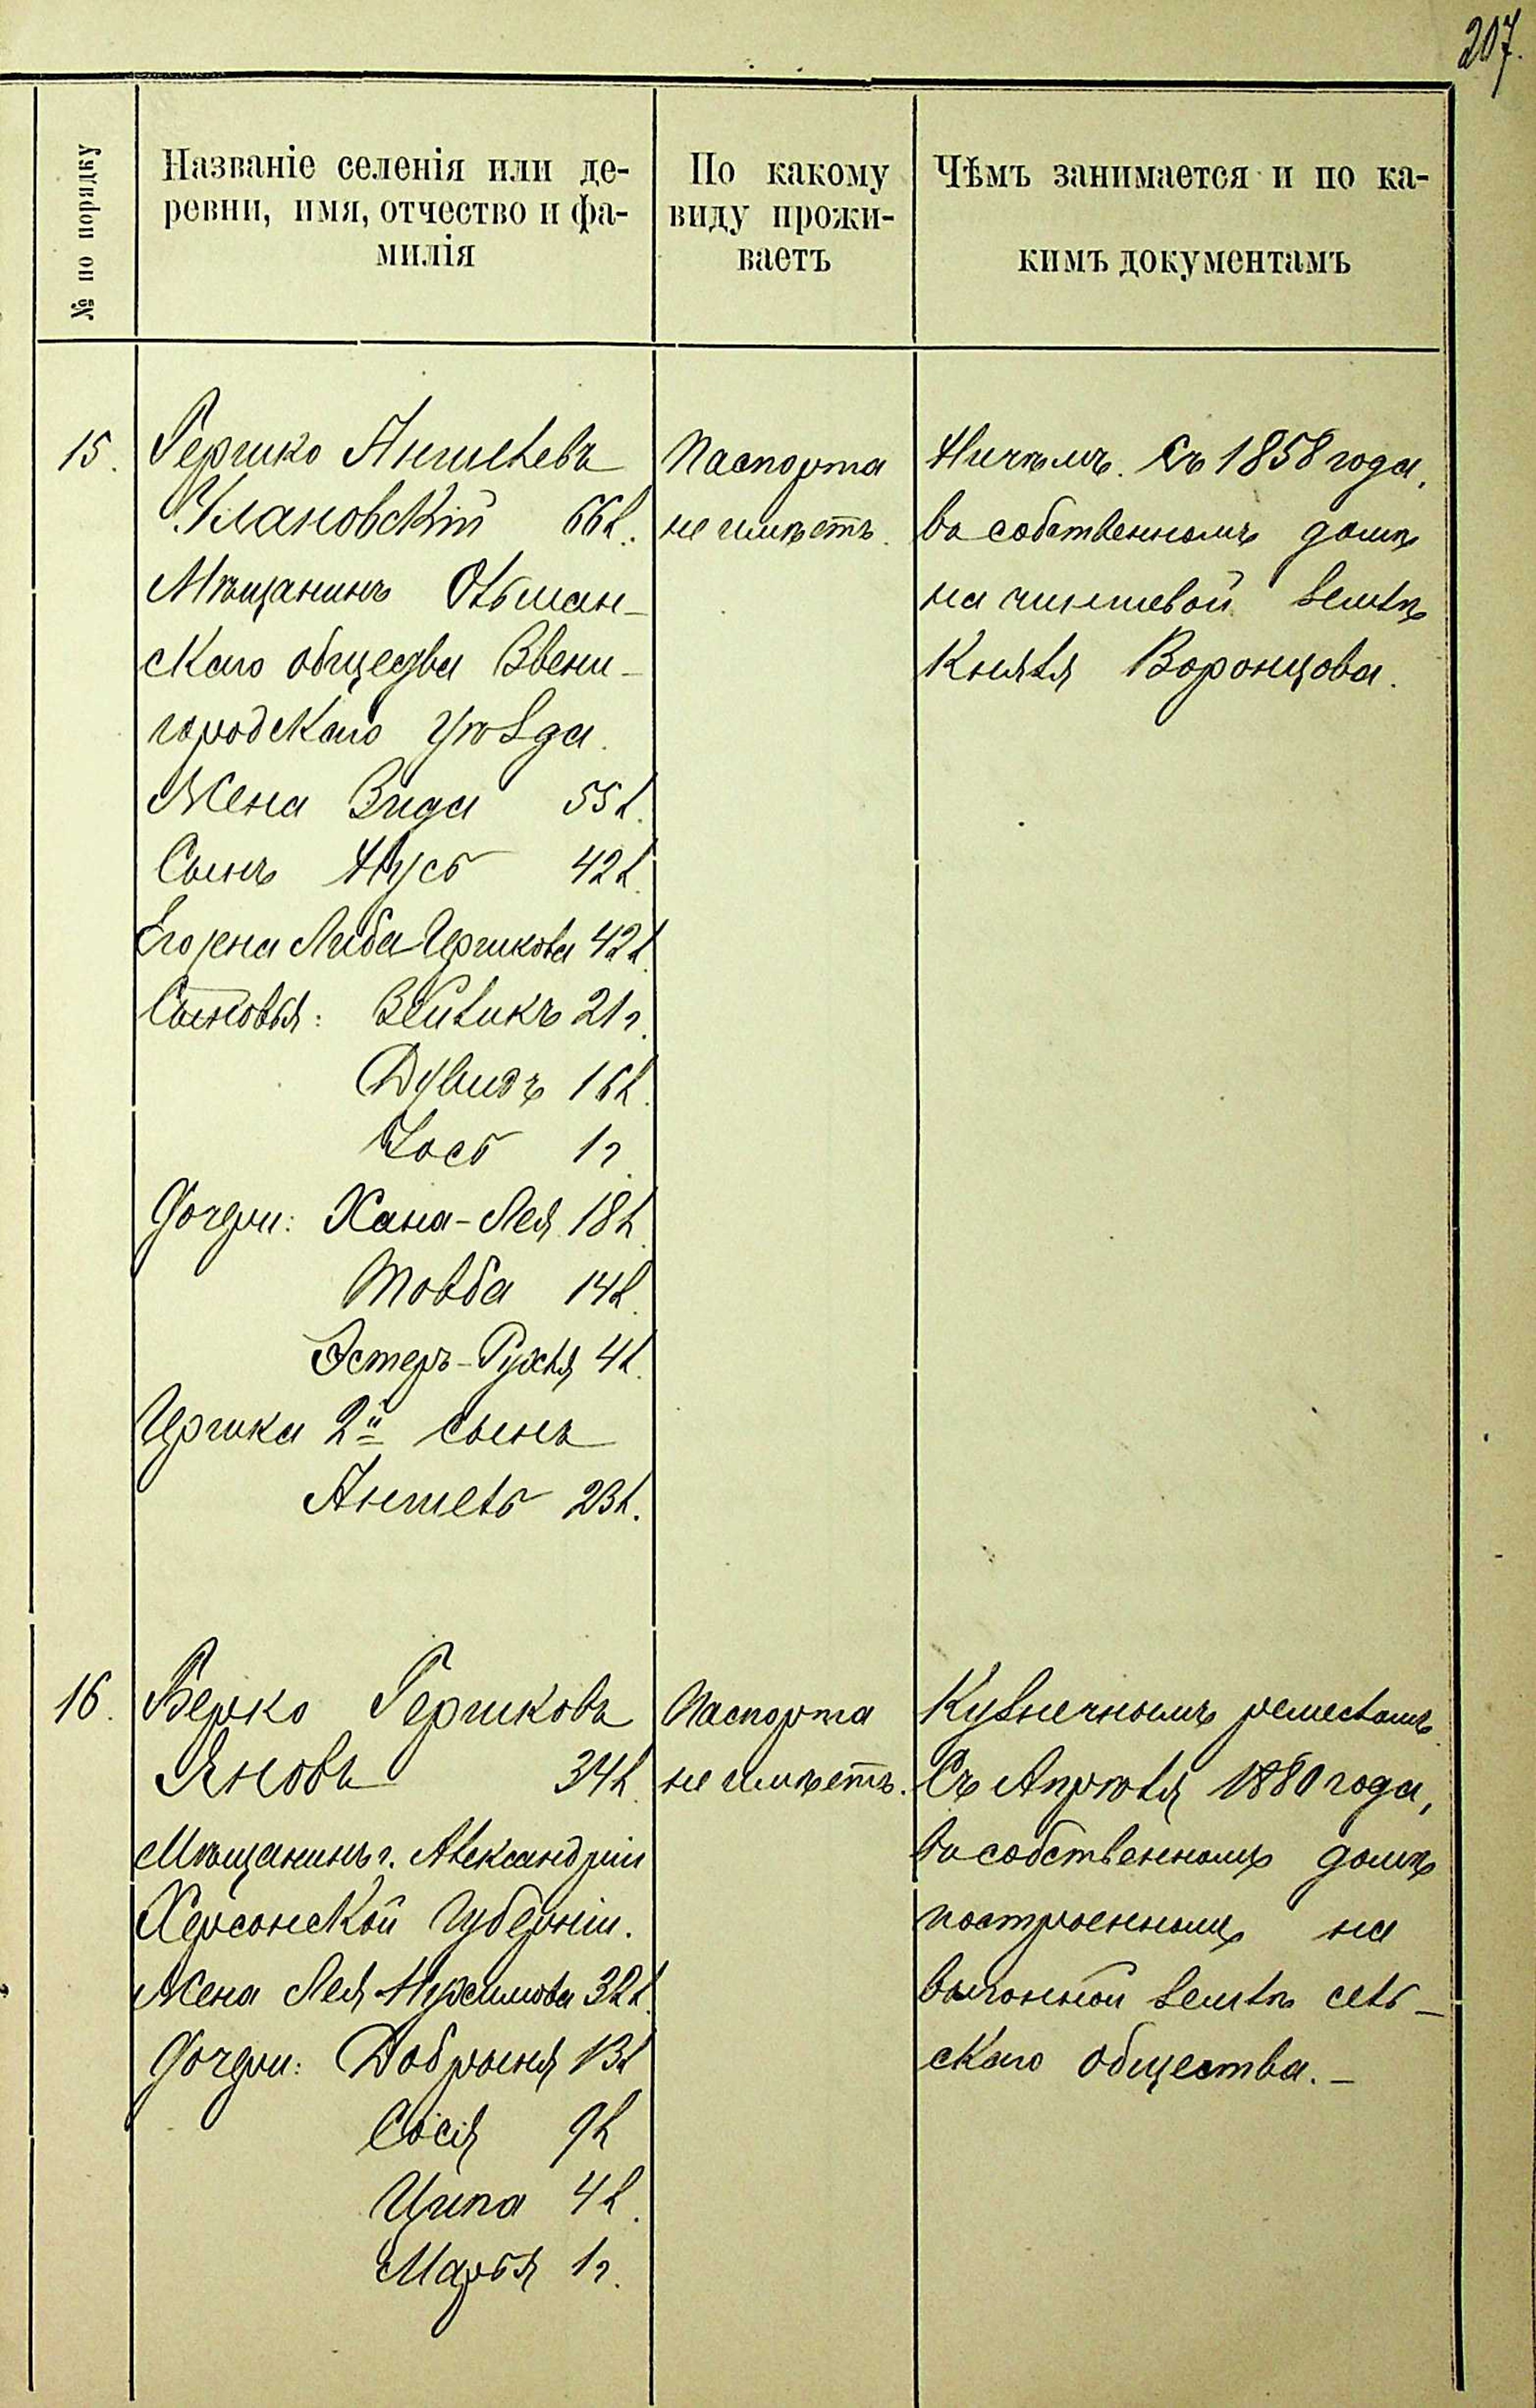 207.
№ по порядку
Названіе селенія или де-
ревни, имя, отчество и фа-
милія
По какому
виду прожи-
ваетъ
Чѣмъ занимается и по ка-
кимъ документамъ
15.
Гершко Аншелевъ
Улановскій 66 л.
Мѣщанинъ Ольшан-
скаго общества Звени-
городскаго уѣзда.
Жена Зида 55 л.
Сынъ Нусь 42 л.
Его жена Либа Ицикова 42 л.
Сыновья: Зейликъ 21 г.
Дувидъ 16 л.
Іось 1 г.
Дочери: Хана-Лея 18 л.
Товба 14 л.
Эстеръ-Рухля 4 л.
Гершка 2й сынъ
Аншель 23 л.
Паспорта
не имѣетъ.
Ничѣмъ. Съ 1858 года,
въ собственномъ домѣ
на чиншевой землѣ
Князя Воронцова.
16.
Берко Гершковъ
Яновъ 34 л.
Мѣщанинъ г. Александріи
Херсонской Губерніи.
Жена Лея Нухимова 32 л.
Дочери: Добрыня 13 л.
Сося 9 л.
Ципа 4 л.
Марья 1 г.
Паспорта
не имѣетъ.
Кузнечнымъ ремесломъ
Съ Апрѣля 1880 года,
въ собственномъ домѣ
построенномъ на
выгонной землѣ сель-
скаго общества. —